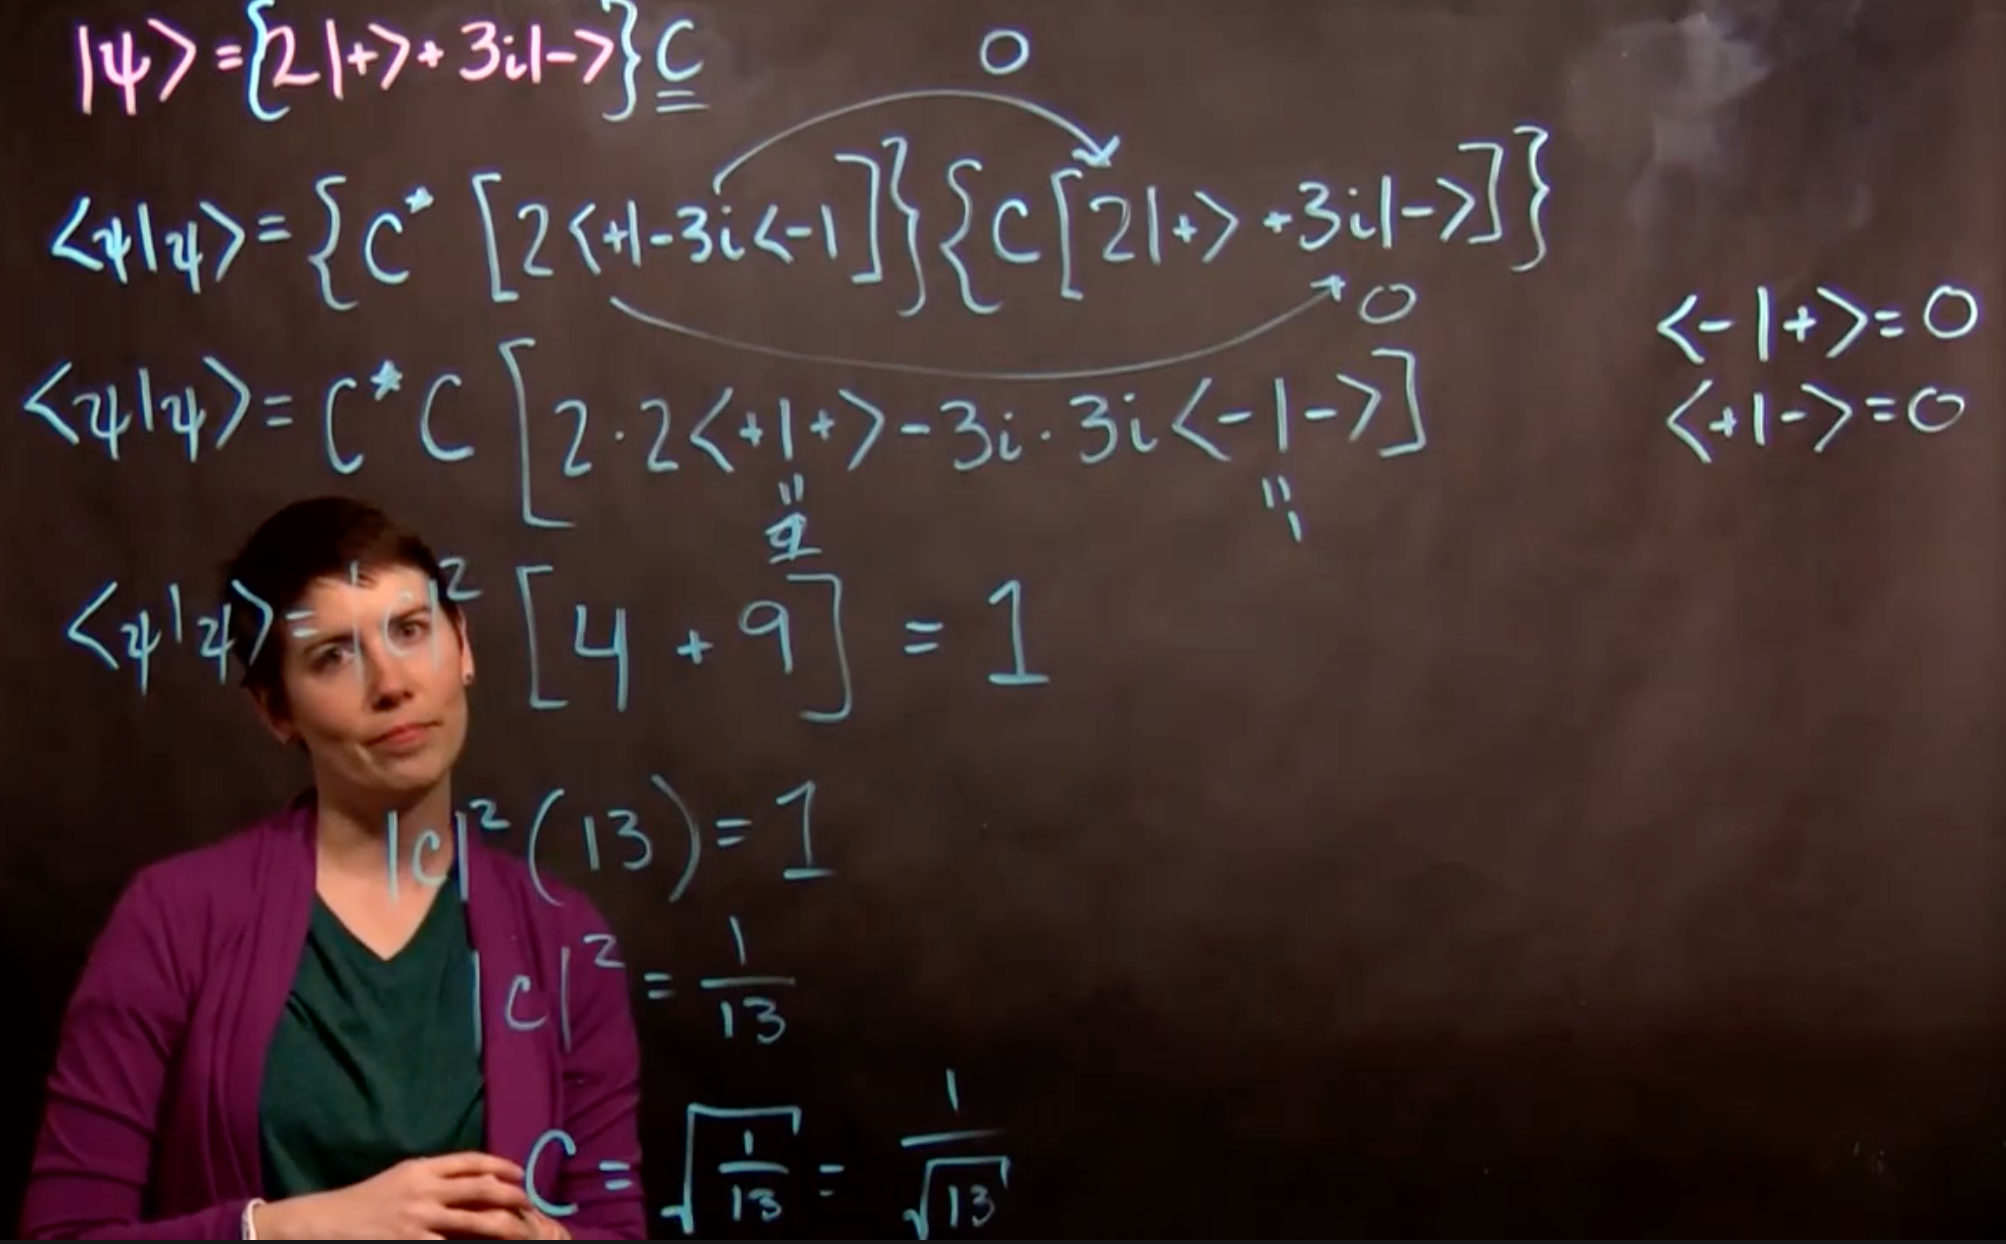 |ψ> = {2|+> + 3i|->} C
0
<ψ|ψ> = {C* [2<+| - 3i<-|]}{C[2|+> + 3i|->]}
0
<-|+> = 0
<ψ|ψ> = C*C [2·2<+|+> - 3i·3i<-|->]
<+|-> = 0
" "
1 1
<ψ|ψ> = |C|² [4 + 9] = 1
|C|² (13) = 1
|C|² = 1/13
C = √(1/13) = 1/√13